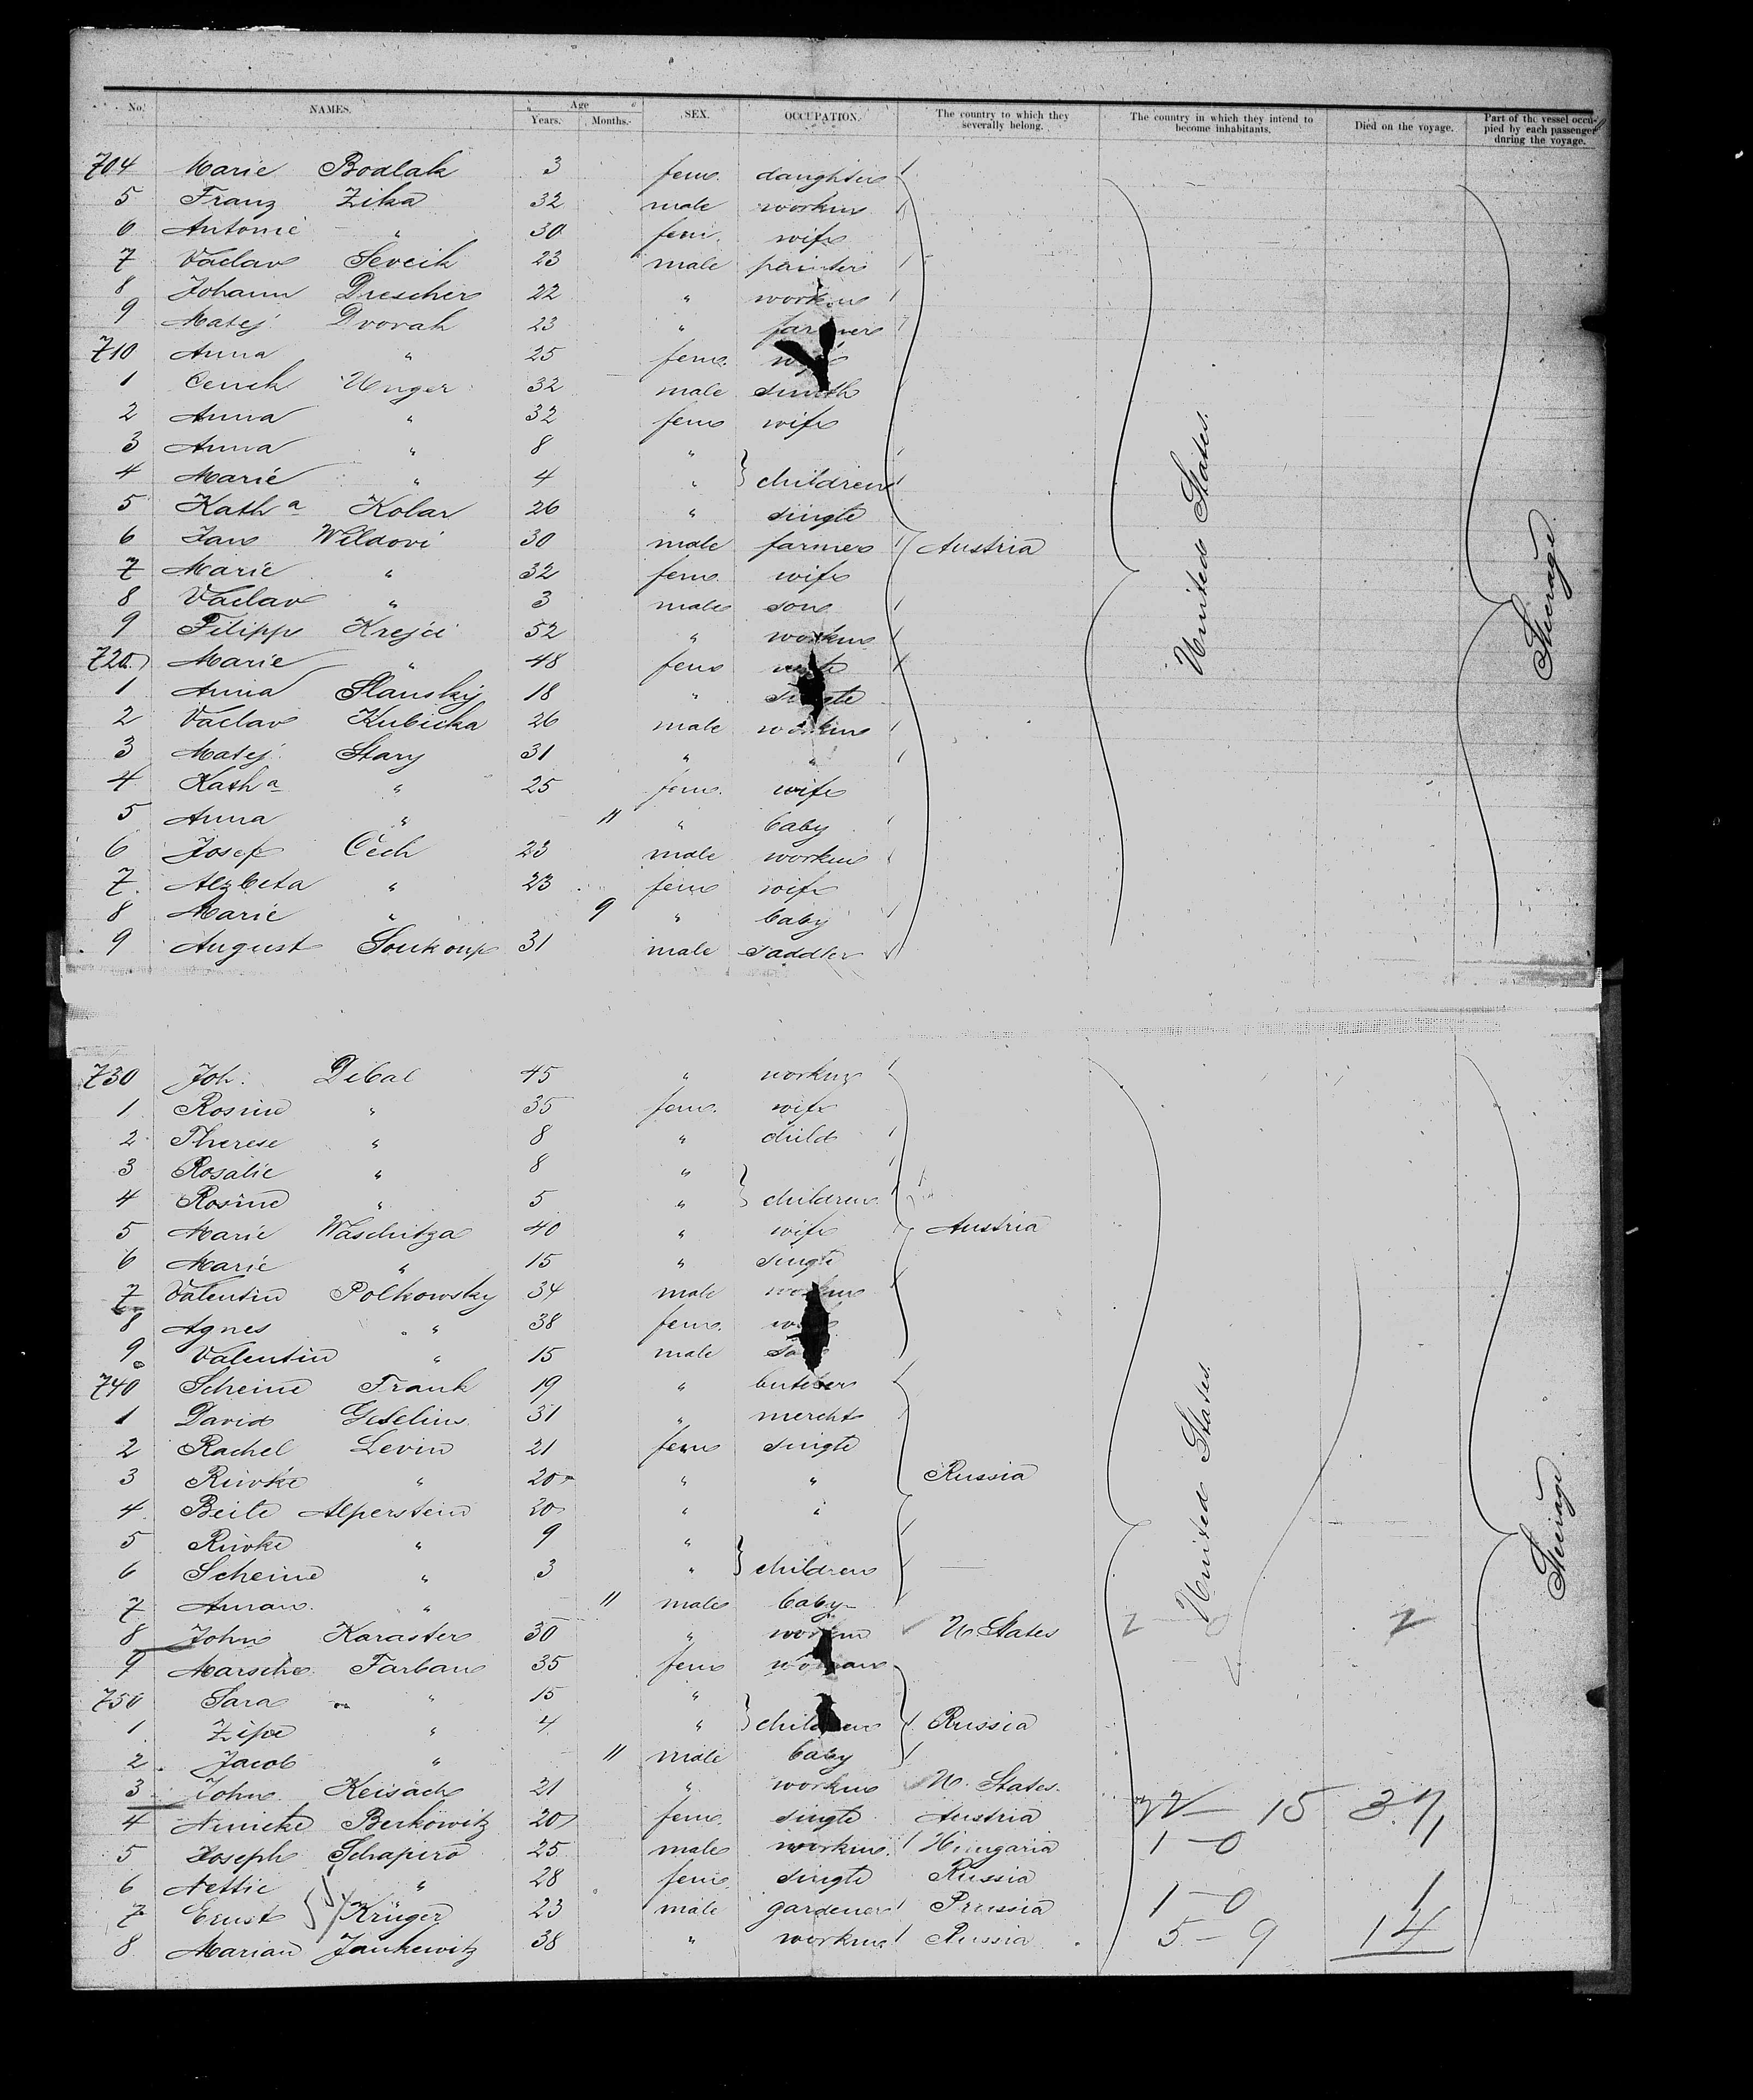 No. NAMES. Age Years. Months. SEX. OCCUPATION. The country to which they severally belong. The country in which they intend to become inhabitants. Died on the voyage. Part of the vessel occupied by each passenger during the voyage.
704 Marie Bodlak 3 fem. daughter
5 Franz Zika 32 male workm
6 Antonie " 30 fem. wife
7 Vaclav Sevcik 23 male painter
8 Johann Drescher 22 " workm
9 Matej Dvorak 23 " farmer
710 Anna " 25 fem. wife
1 Cenek Unger 32 male smith
2 Anna " 32 fem wife
3 Anna " 8 "
4 Marie " 4 " children
5 Kath a Kolar 26 " single
6 Jan Wildovi 30 male farmer Austria
7 Marie " 32 fem. wife
8 Vaclav " 3 male son
9 Filipp Krejci 52 " workm
720 Marie " 48 fem wife
1 Anna Slansky 18 " single
2 Vaclav Kubicka 26 male workm
3 Matej Stary 31 " "
4 Kath a " 25 fem. wife
5 Anna " 11 " baby
6 Josef Cech 23 male workm
7 Alzbeta " 23 fem wife
8 Marie " 9 " baby
9 August Soukoup 31 male saddler
United States.
Steerage.
730 Joh. Dibal 45 " workm
1 Rosine " 35 fem. wife
2 Therese " 8 " child
3 Rosalie " 8 "
4 Rosine " 5 " children
5 Marie Waschitza 40 " wife Austria
6 Marie " 15 " single
7 Valentin Polkowsky 34 male workm
8 Agnes " 38 fem. wife
9 Valentin " 15 male son
740 Scheine Frank 19 " butcher
1 David 31 " mercht
2 Rachel Levin 21 fem single
3 Riwke " 20 " " Russia
4 Beile Alperstein 20 " "
5 Riwke " 9 "
6 Scheine " 3 " children
7 " 11 male baby
8 John Karaster 30 " workm U States 2 2
9 Marsche Farban 35 fem woman
750 Sara " 15 "
1 Zipe " 4 " children Russia
2 Jacob " 11 male baby
3 John Keisach 21 " workm U. States.
4 Berkowitz 20 fem. single Austria 15
5 Joseph Schapiro 25 male workm. Hungaria 1-0
6 Nettie " 28 fem. single Russia 1-0 1
7 Ernst Krüger 23 male gardener Prussia 5-9 14
8 Marian Jankewitz 38 " workm Russia
United States.
Steerage.